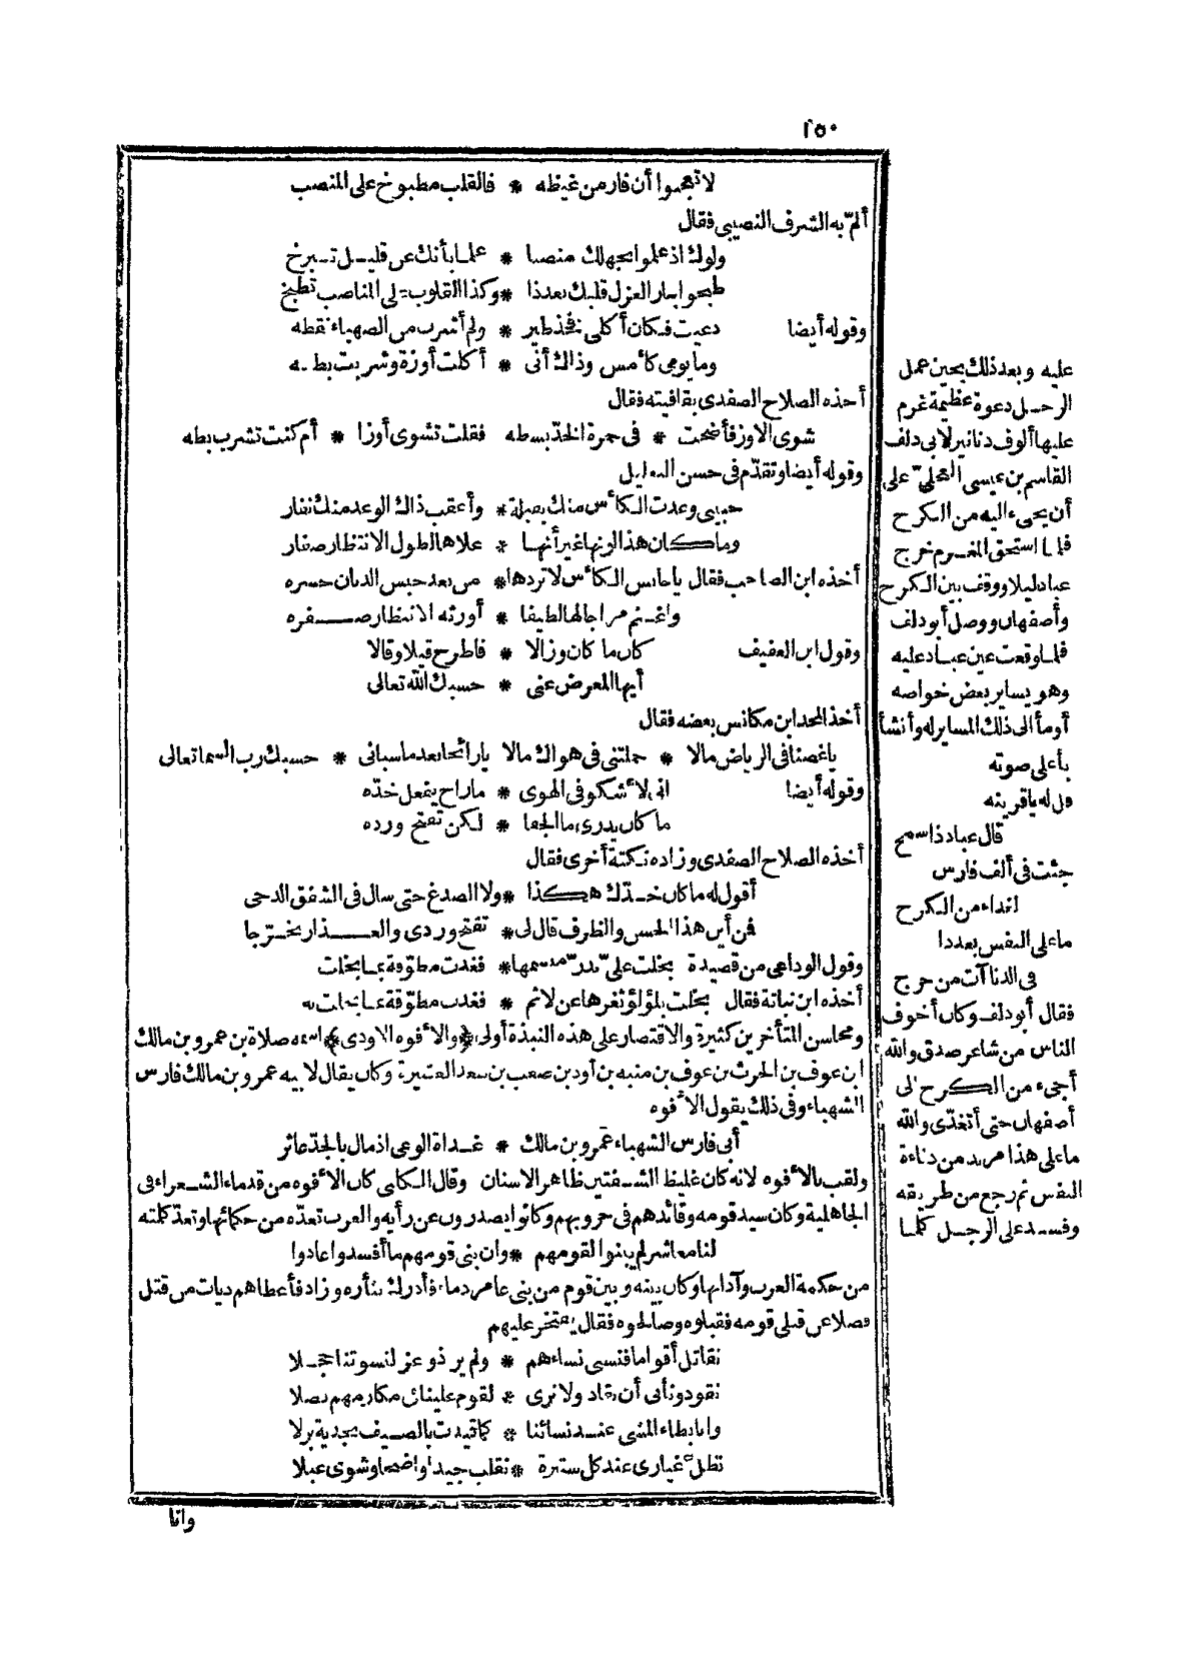 ٢٥٠
لا تعجبوا أن فار من غيظه * فالقلب مطبوخ على المنصب
ألمّ به الشرف النصيبى فقال
ولوك اذ علموا بجهلك منصبا * علما بأنك عن قليـل تـبرخ
طبخوا بنار العزل قلبك بعد ذا * وكذا القلوب على المناصب تطبخ
وقوله أيضا دعيت فكان أكلى فخذ طير * ولم أشرب من الصهباء نقطه
وما يومى كأمس وذاك أنى * أكلت أوزة وشربت بطـه
أخذه الصلاح الصفدى بقافيته فقال
شوى الاوز فأضحت * فى حمرة الخدّ بسطه فقلت تشوى أوزا * أم كنت تشرب بطه
وقوله أيضا وتقدّم فى حسن التعليل
حبيبى وعدت الكأس منك بقبلة * وأعقب ذاك الوعد منك نفار
وما كان هذا لونها غير أنهـا * علاها لطول الانتظار صفار
أخذه ابن الصاحب فقال يا حابس الكأس لا تردها * من بعد حبس الدنان حسره
واغـنم مزاجا لها لطيفا * أورثه الانتظار صـفره
وقول ابن العفيف كان ما كان وزالا * فاطرح قيلا وقالا
أيها المعرض عنى * حسبك الله تعالى
أخذ المجد ابن مكانس بعضه فقال
يا غصنا فى الرياض مالا * حملتنى فى هواك مالا يا رائحا بعد ما سبانى * حسبك رب السما تعالى
وقوله أيضا انى لأشكو فى الهوى * ما راح يفعل خدّه
ما كان يدرى ما الجفا * لكن تفتح ورده
أخذه الصلاح الصفدى وزاده نكتة أخرى فقال
أقول له ما كان خـدّك هكذا * ولا الصدغ حتى سال فى الشفق الدجى
فمن أين هذا الحسن والظرف قال لى * تفتح وردى والعـذار تخـرّجا
وقول الوداعى من قصيدة بخلت على بدرّ مبسمها * فغدت مطوّقة بما بخلت
أخذه ابن نباتة فقال بخلت بلؤلؤ ثغرها عن لاثم * فغدت مطوّقة بما بخلت به
ومحاسن المتأخرين كثيرة والاقتصار على هذه النبذة أولى ﴿والأفوه الاودى﴾ اسمه صلاة بن عمرو بن مالك
ابن عوف بن الحرث بن عوف بن منبه بن أود بن صعب بن سعد العشيرة وكان يقال لابيه عمرو بن مالك فارس
الشهباء وفى ذلك يقول الأفوه
أبى فارس الشهباء عمرو بن مالك * غـداة الوغى اذ مال بالجدّ عاثر
ولقب بالأفوه لانه كان غليظ الشـفتين ظاهر الاسنان وقال الكلبى كان الأفوه من قدماء الشـعراء فى
الجاهلية وكان سيد قومه وقائدهم فى حروبهم وكانوا يصدرون عن رأيه والعرب تعدّه من حكمائها وتعدّ كلمته
لنا معاشر لم يبنوا لقومهم * وان بنى قومهم ما أفسدوا عادوا
من حكمة العرب وآدابها وكان بينه وبين قوم من بنى عامر دماء فأدرك بثأره وزاد فأعطاهم ديات من قتل
فضلا عن قتلى قومه فقبلوه وصالحوه فقال يفتخر عليهم
نقاتل أقواما فنسبى نساءهم * ولم ير ذو عز لنسوتنا حجـلا
نقود ونأبى أن نقاد ولا نرى * لقوم علينا فى مكارمهم فضلا
وانا بطاء المشى عنـد نسائنا * كما قيدت بالصيف نجدية بزلا
تظل غيارى عند كل ستيرة * نقلب جيدا واضحا وشوى عبلا
وانا
عليه وبعد ذلك بحين عمل
الرجـل دعوة عظيمة غرم
عليها ألوف دنانير لابى دلف
القاسم بن عيسى العجلىّ على
أن يجىء اليه من الكرج
فلما استحق المغـرم خرج
عباد ليلا ووقف بين الكرج
وأصفهان ووصل أبو دلف
فلما وقعت عين عبـاد عليه
وهو يساير بعض خواصه
أومأ الى ذلك المساير له وأنشأ
بأعلى صوته
قل له يا قرينه
قال عباد ذا سمج
جئت فى ألف فارس
لغداء من الكرج
ما على النفس بعد ذا
فى الدنا آت من حرج
فقال أبو دلف وكان أخوف
الناس من شاعر صدق والله
أجىء من الكرج الى
أصفهان حتى أتغدّى والله
ما على هذا مزيد من دناءة
النفس ثم رجع من طريقه
وفسـد على الرجـل كلما